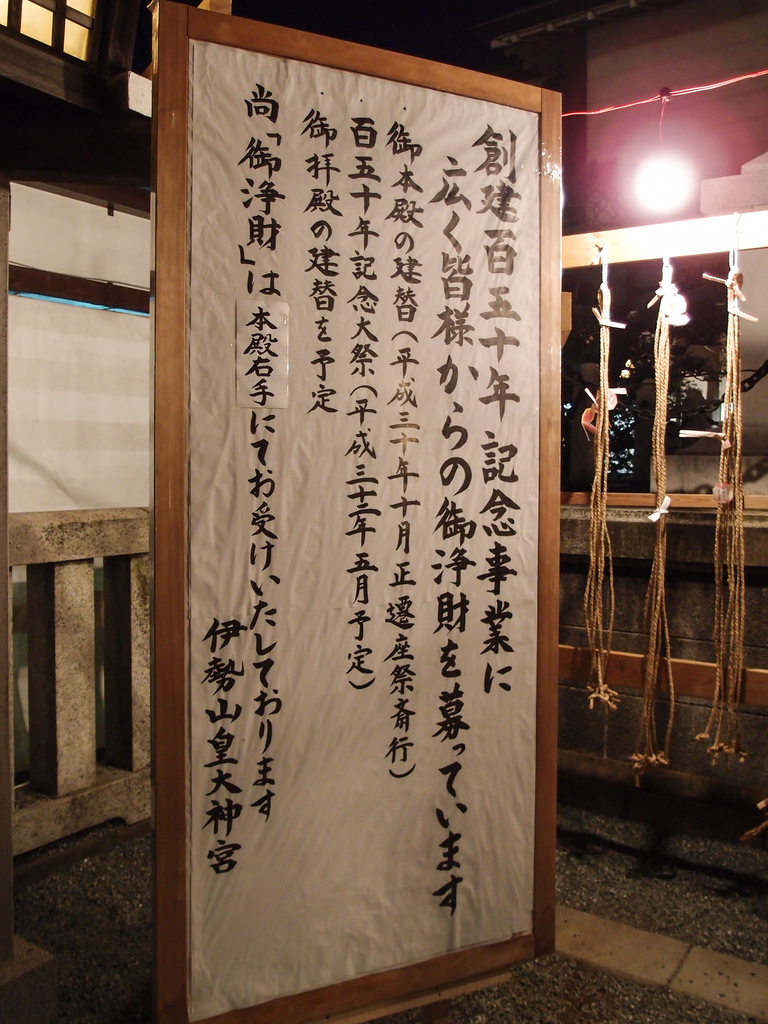 創建百五十年記念事業に
広く皆様からの御浄財を募っています
・御本殿の建替(平成三十年十月正遷座祭斎行)
・百五十年記念大祭(平成三十二年五月予定)
・御拝殿の建替を予定
尚「御浄財」は本殿右手にてお受けいたしております
伊勢山皇大神宮